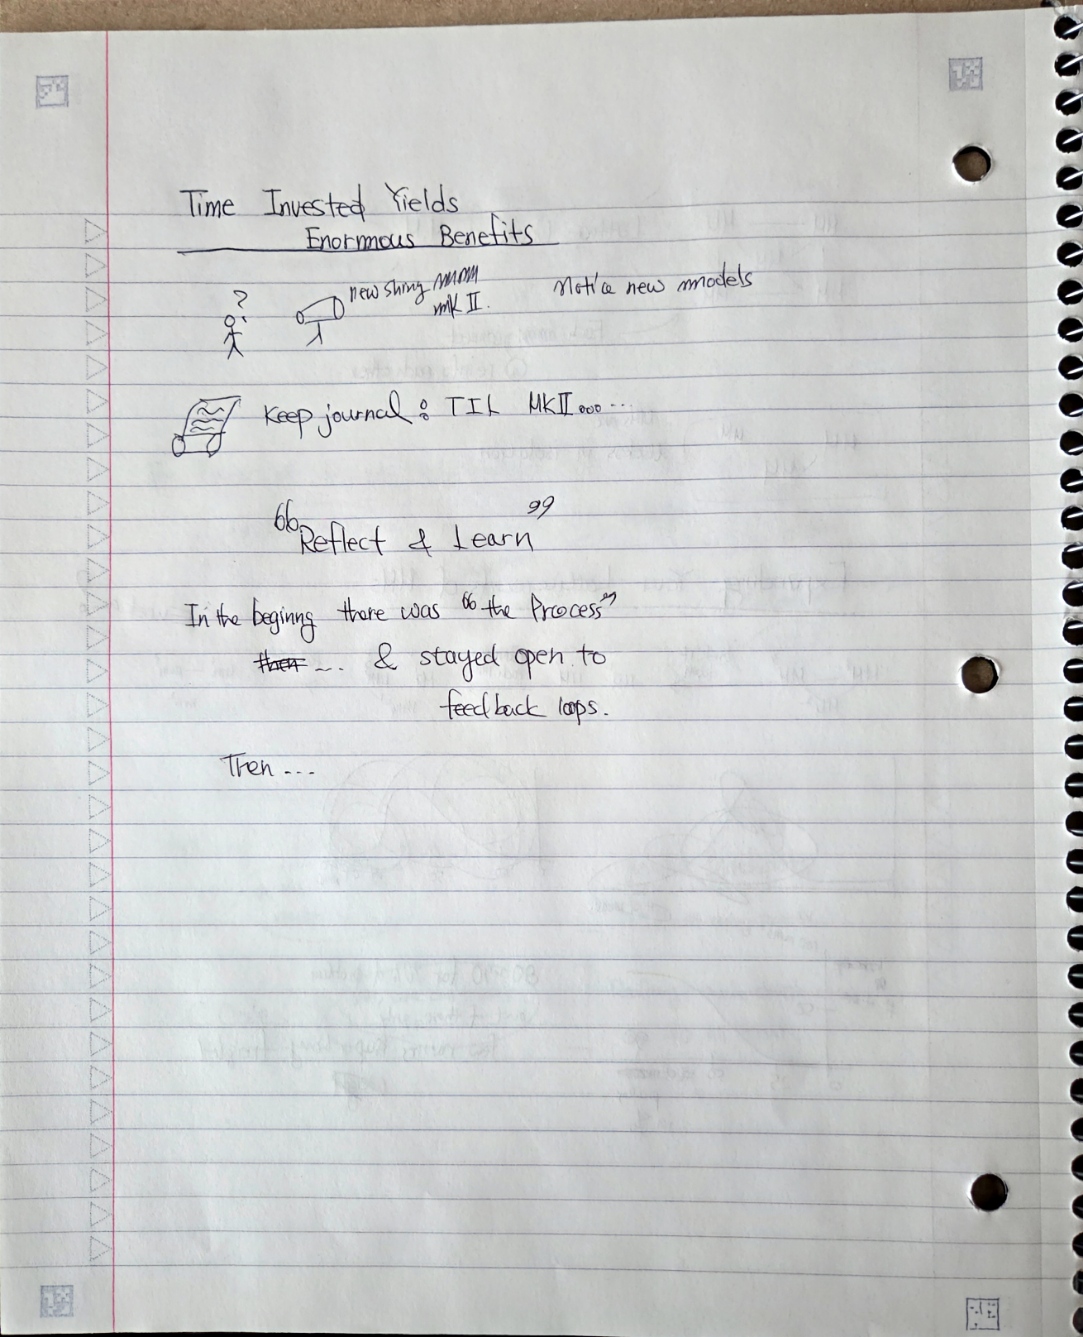 Time Invested Yields
Enormous Benefits
?
new
mk II.
Notice new models
Keep journal : TIL MKII ooo ...
“Reflect & Learn”
In the beginng there was “the Process”
then ... & stayed open to
feedback loops.
Then ...